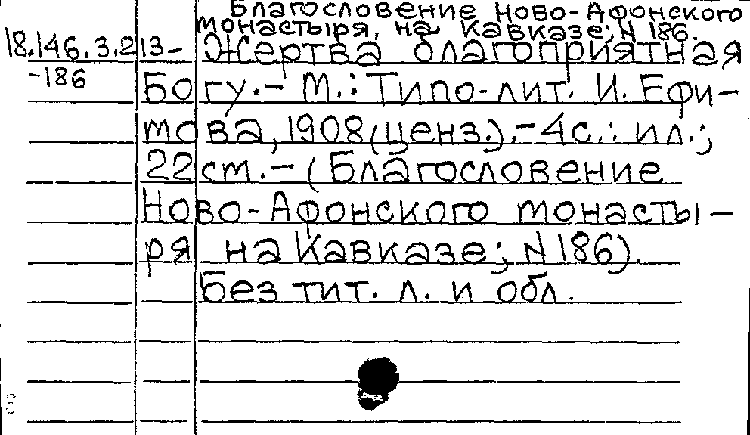 Благословение Ново-Афонского
монастыря, на Кавказе; N 186.
18.146.3.213- Жертва благоприятная
-186 Богу.- М.: Типо-лит. И. Ефи-
мова, 1908(ценз.).-4с.: ил.;
22ст.-(Благословение
Ново-Афонского монасты-
ря на Кавказе; N 186).
Без тит. л. и обл.